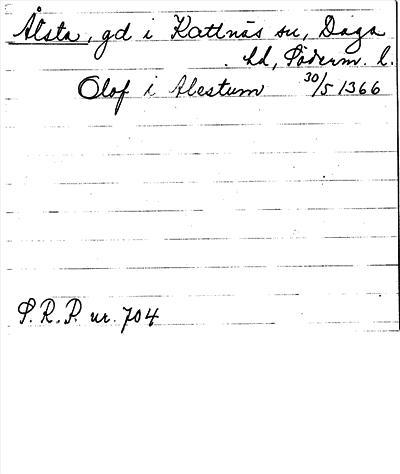 Ålsta, gd i Kattnäs sn, Daga
hd, Söderm. l.
Olof i Alestum 30/5 1366
S.R.P. nr. 704